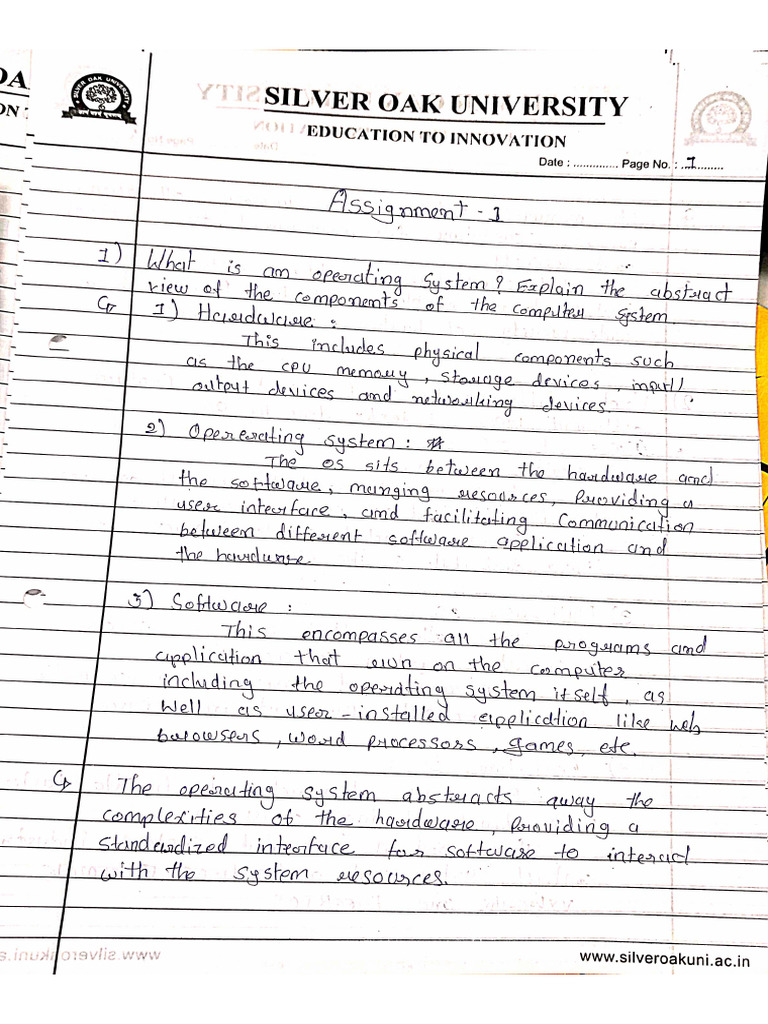 OA
ON
SILVER OAK UNIVERSITY
SILVER OAK UNIVERSITY
EDUCATION TO INNOVATION
Date : .............. Page No. : ..1........
Assignment - 1
1) What is an operating System? Explain the abstract
view of the components of the computer system.
1) Hardware :
This includes physical components such
as the CPU memory, storage devices, input/
output devices and networking devices.
2) Opererating system :
The OS sits between the hardware and
the software, manging resources, Providing a
user interface, and facilitating Communication
between different software application and
the hardware.
3) Software :
This encompasses all the programs and
application that run on the computer
including the operating system itself, as
well as user-installed application like web
browsers, word processors, games, etc.
The operating system abstracts away the
complexities of the hardware, Providing a
standardized interface for software to interact
with the system resources.
www.silveroakuni.ac.in